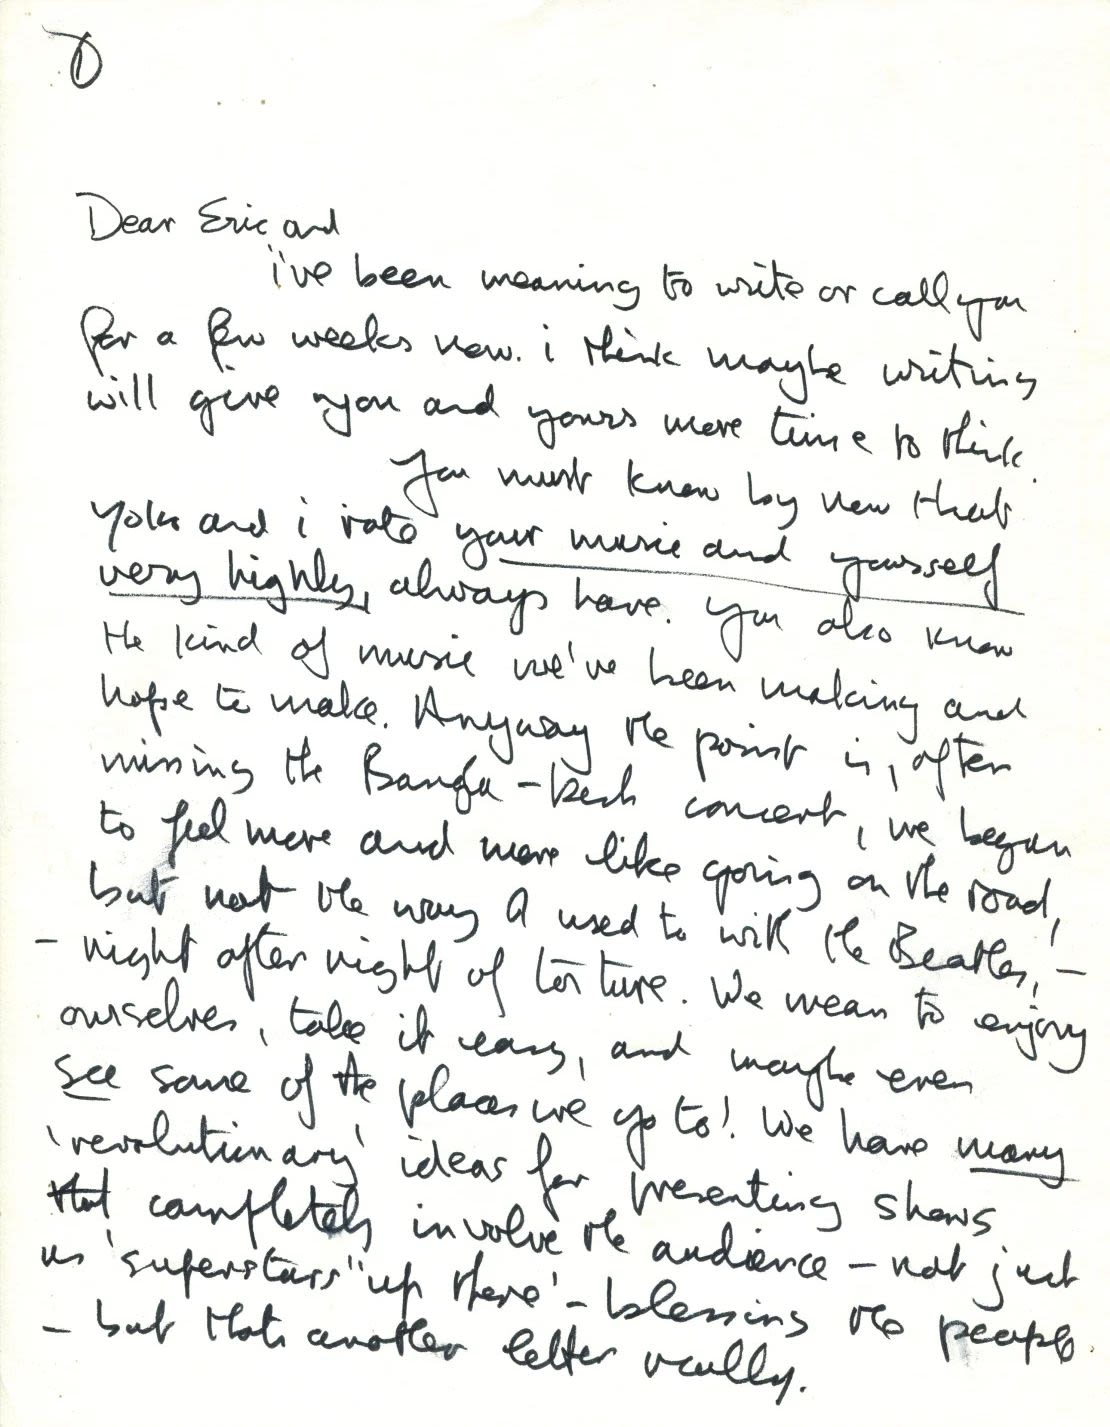 ①
Dear Eric and
i've been meaning to write or call you
for a few weeks now. i think maybe writing
will give you and yours more time to think.
You must know by now that
Yoko and i rate your music and yourself
very highly, always have. You also know
the kind of music we've been making and
hope to make. Anyway the point is, after
missing the Bangla-Desh concert, we began
to feel more and more like going on the road,
but not the way I used to with the Beatles,! –
– night after night of torture. We mean to enjoy
ourselves, take it easy, and maybe even
see some of the places we go to! We have many
'revolutionary' ideas for presenting shows
that completely involve the audience – not just
us 'superstars' 'up there' – blessing the people
– but thats another letter really.